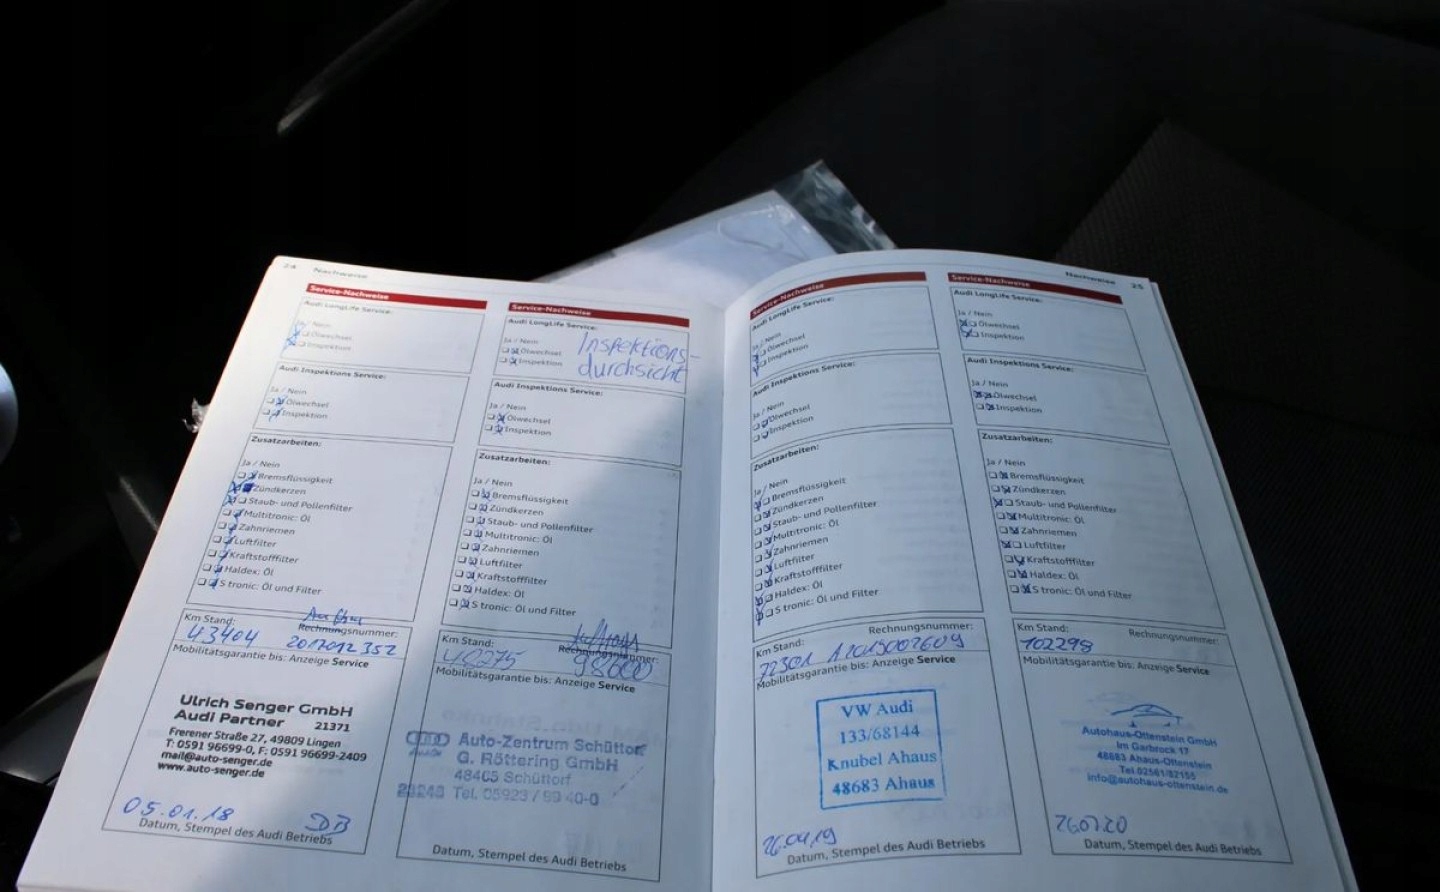 24 Nachweise
Service-Nachweise
Audi LongLife Service:
Ja / Nein
Ölwechsel
Inspektion
Audi Inspektions Service:
Ja / Nein
Ölwechsel
Inspektion
Zusatzarbeiten:
Ja / Nein
Bremsflüssigkeit
Zündkerzen
Staub- und Pollenfilter
Multitronic: Öl
Zahnriemen
Luftfilter
Kraftstofffilter
Haldex: Öl
S tronic: Öl und Filter
Km Stand: Rechnungsnummer:
43404 2017012352
Mobilitätsgarantie bis: Anzeige Service
Ulrich Senger GmbH
Audi Partner 21371
Frerener Straße 27, 49809 Lingen
T: 0591 96699-0, F: 0591 96699-2409
mail@auto-senger.de
www.auto-senger.de
05.01.18 DB
Datum, Stempel des Audi Betriebs
Service-Nachweise
Audi LongLife Service:
Ja / Nein
Ölwechsel
Inspektion
Inspektions-
durchsicht
Audi Inspektions Service:
Ja / Nein
Ölwechsel
Inspektion
Zusatzarbeiten:
Ja / Nein
Bremsflüssigkeit
Zündkerzen
Staub- und Pollenfilter
Multitronic: Öl
Zahnriemen
Luftfilter
Kraftstofffilter
Haldex: Öl
S tronic: Öl und Filter
Km Stand: Rechnungsnummer:
Mobilitätsgarantie bis: Anzeige Service
Auto-Zentrum Schüttorf
G. Röttering GmbH
48465 Schüttorf
Tel. 05923 / 99 40-0
Datum, Stempel des Audi Betriebs
Nachweise 25
Service-Nachweise
Audi LongLife Service:
Ja / Nein
Ölwechsel
Inspektion
Audi Inspektions Service:
Ja / Nein
Ölwechsel
Inspektion
Zusatzarbeiten:
Ja / Nein
Bremsflüssigkeit
Zündkerzen
Staub- und Pollenfilter
Multitronic: Öl
Zahnriemen
Luftfilter
Kraftstofffilter
Haldex: Öl
S tronic: Öl und Filter
Km Stand: Rechnungsnummer:
72301
Mobilitätsgarantie bis: Anzeige Service
VW Audi
133/68144
Knubel Ahaus
48683 Ahaus
26.04.19
Datum, Stempel des Audi Betriebs
Service-Nachweise
Audi LongLife Service:
Ja / Nein
Ölwechsel
Inspektion
Audi Inspektions Service:
Ja / Nein
Ölwechsel
Inspektion
Zusatzarbeiten:
Ja / Nein
Bremsflüssigkeit
Zündkerzen
Staub- und Pollenfilter
Multitronic: Öl
Zahnriemen
Luftfilter
Kraftstofffilter
Haldex: Öl
S tronic: Öl und Filter
Km Stand: Rechnungsnummer:
102298
Mobilitätsgarantie bis: Anzeige Service
Autohaus-Ottenstein GmbH
Im Garbrock 17
48683 Ahaus-Ottenstein
Tel.02561/82155
info@autohaus-ottenstein.de
26.07.20
Datum, Stempel des Audi Betriebs